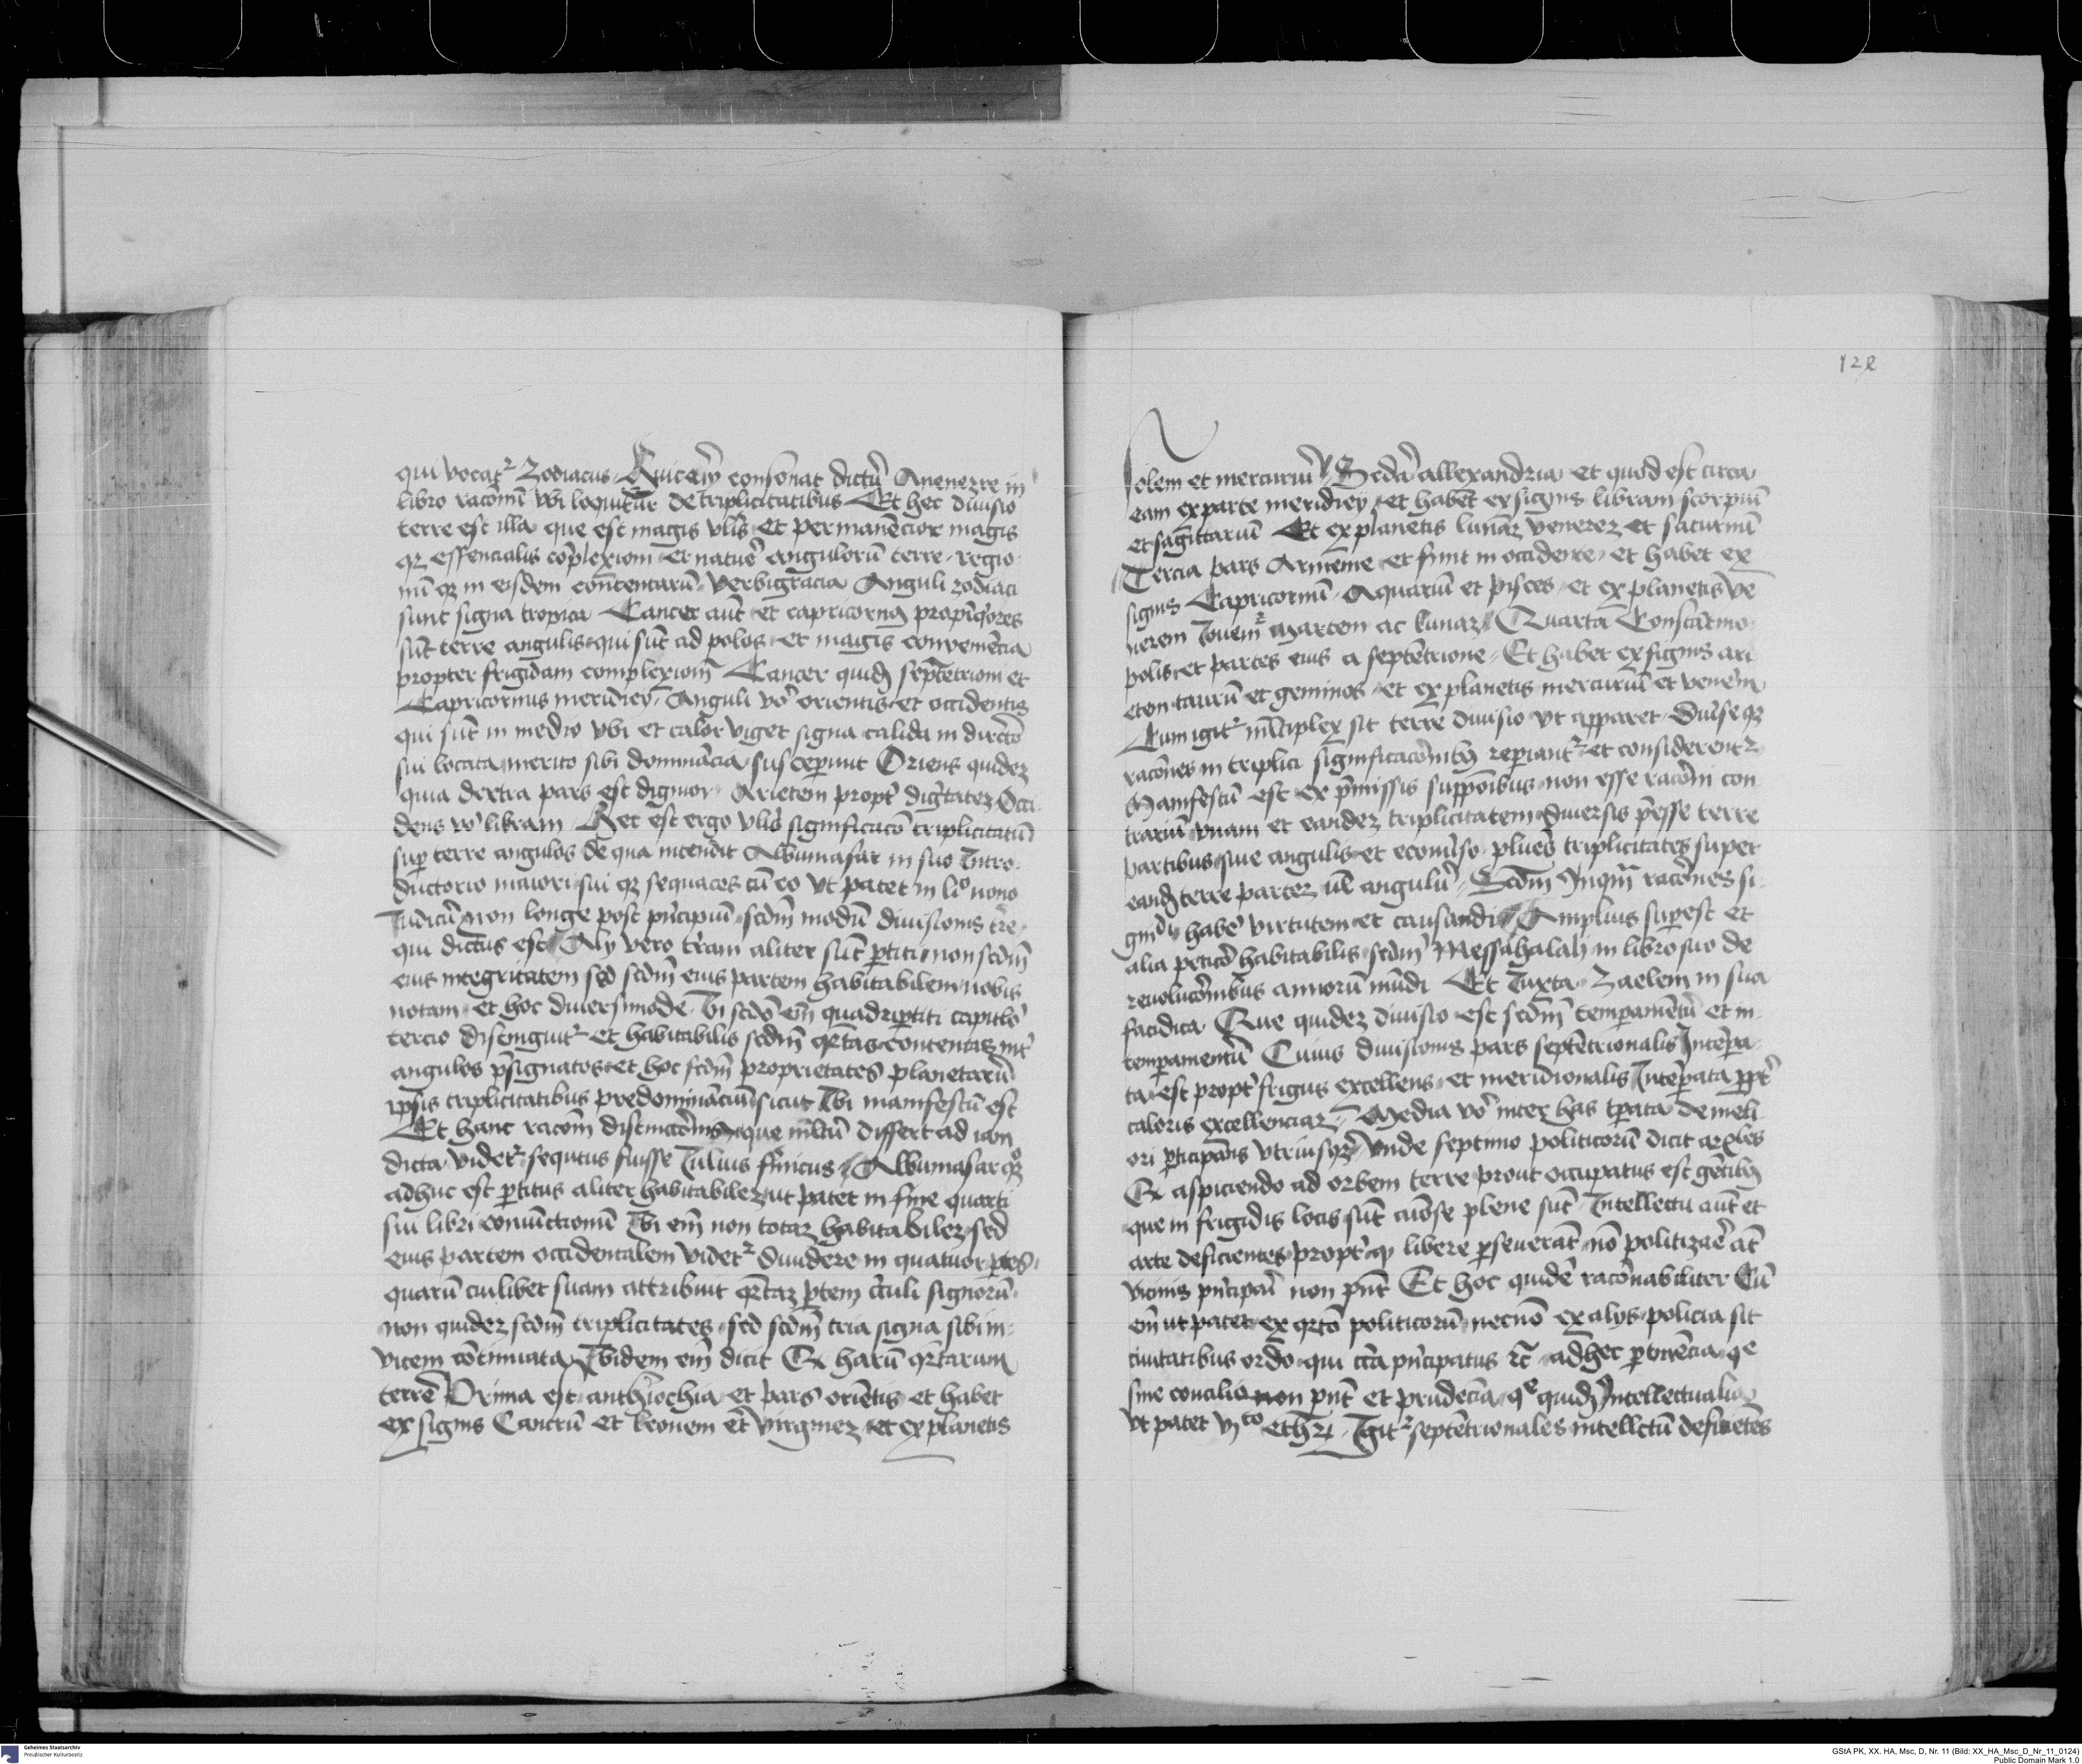 qui vocat᷑ Zodiacus Huic em̄ consonat dictū Auenezre in
libro racōnū vbi loquitur de triplicitatibus Et hec diuisio
terre est illa que est magis vl̄is et permanēcior magis
qꝫ essencialis cōplexioni et natur̄e angulorū terre regio
nū qꝫ in eisdem contentarū verbigracia Anguli zodiaci
sunt signa tropica Cancer aūt et capricornꝰ propīq'ores
sūt terre angulis qui sūt ad polos et magis conuenēcia
propter frigidam complexionē Cancer quidꝫ septētrioni et
Capricornus meridiey Anguli vō orientis et occidentis
qui sūt in medio vbi et calor viget signa calida in dircto
sui locata merito sibi domināncia susceperunt Oriens quidez
quia dextra pars est dignior Arietem propt' dig'tatez Occi
dens vō libram Hec est ergo vl̄is significacō triplicitatū
sup terre angulos de qua intendit Albumasar in suo Intro
ductorio maiori sui qꝫ sequaces cū eo vt patet in li° nono
Iudicū non longe post pn̄cipiū scdm̄ modū diuisionis tr̄e
qui dictus est Aly vero tr̄am aliter sūt p̱titi non scdm̄
eius integritatem sed scdm̄ eius partem habitabilem nobis
notam et hoc diuersimode Vbi scdō em̄ quadrip̱titi capitlō
tercio distinguit᷑ et habitabilis scdm̄ qr̄tas contentas int'
angulos p̄signatos et hoc scdm̄ proprietates planetarū
ip̄sis triplicitatibus predominānciū sicut Ibi manifestū est
Et hanc racōm̄ que ml̄tū differt ad iam
dicta videt᷑ sequtus fuisse Iulius firmicus Albumasar qꝫ
adhuc est p̱titus aliter habitabilez ut patet in fine quarti
sui libri coniūctionū Ibi em̄ non totaz habitabilez sed
eius partem occidentalem videt᷑ diuidere in quatuor p̱tes
quarū cuilibet suam attribuit qr̄taz p̱tem circuli signorū
non quidez scdm̄ triplicitates sed scdm̄ tria signa sibi in
vicem cōtinuata Ibidem em̄ dicit Et harū qr̄tarum
terre Prima est anthiochia et pars oriētis et habet
ex signis Cancrū et leonem et virginez et ex planetis
12
Solem et mercuriū Scdā allexandria et quod est circa
eam ex parte meridiey et habēt ex signis libram scorpiū
et sagittariū Et ex planetis lunāz venerez et saturnū
Tercia pars Armenie et sunt in occidente et habet ex
signis Capricornū Aquariū et pisces et ex planetis ve
nerem Iouem martem ac lunaz Quarta Constātino
polis et partes eius a septētrione Et habet ex signis ari
etem taurū et geminos et ex planetis mercuriū et venerē
Cum igit᷑ ml̄tiplex sit terre diuisio vt apparet diuerse qꝫ
racōnes in triplici significacōnibꝰ reperiant᷑ et considerent᷑
Manifestū est ex p̄missis supp̄oibus non esse racōni con
trariū vnam et eandez triplicitatem diuersis p̄esse terre
partibus siue angulis et ecōuerso plures triplicitates super
eandꝫ terre partez ul̄ angulū Scdm̄ Inqm̄ racōnes si
gn̄di habēr virtutem et causandi Amplius superest et
alia p̱ticō habitabilis scdm̄ Messahalah in libro suo de
reuolucōnibus annorū mūdi Et Iuxta Zaelem in sua
fatidica Que quidez diuisio est scdm̄ temperamētū et in
temperamentū Cuius diuisionis pars septētrionalis Intēpera
ta est propt' frigus excellens et meridionalis Intēperata ppt'
caloris excellenciaz Media vō inter has tp̱ata de meli
ori p̱ticipans vtriusqꝫ Vnde septimo politicorū dicit ar̄les
Et aspiciendo ad orbem terre prout occupatus est gētibꝰ
que in frigidis locis sūt plene sūt Intellectu aūt et
arte deficientes propt' qꝫ libere p̱seuerāt nō politizāt āt
vicinis pn̄cipari non pn̄t Et hoc quidē racōnabiliter Cū
em̄ ut patet ex qr̄to politicorū necnō ex alys policia sit
ciuitatibus ordo qui cir̄a pn̄cipatus ꝛc̄ ad hec p̱tinēcia q̄e
sine concilio non pn̄t et prudēcia q̄e quidꝫ Intellectualia
vt patet vjto eth᷑ꝝ Igit᷑ septētrionales intellctū deficiētes
GStA PK, XX. HA, Msc, D, Nr. 11 (Bild: XX_HA_Msc_D_Nr_11_0124)
Public Domain Mark 1.0
Geheimes Staatsarchiv
Preußischer Kulturbesitz